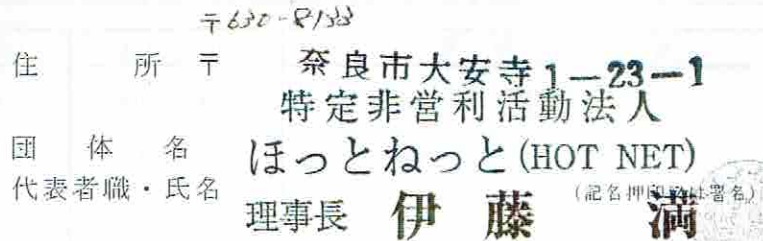 〒630-8133
住所 〒 奈良市大安寺1-23-1
特定非営利活動法人
団体名 ほっとねっと(HOT NET)
代表者職・氏名 (記名押印又は署名)
理事長 伊藤 満